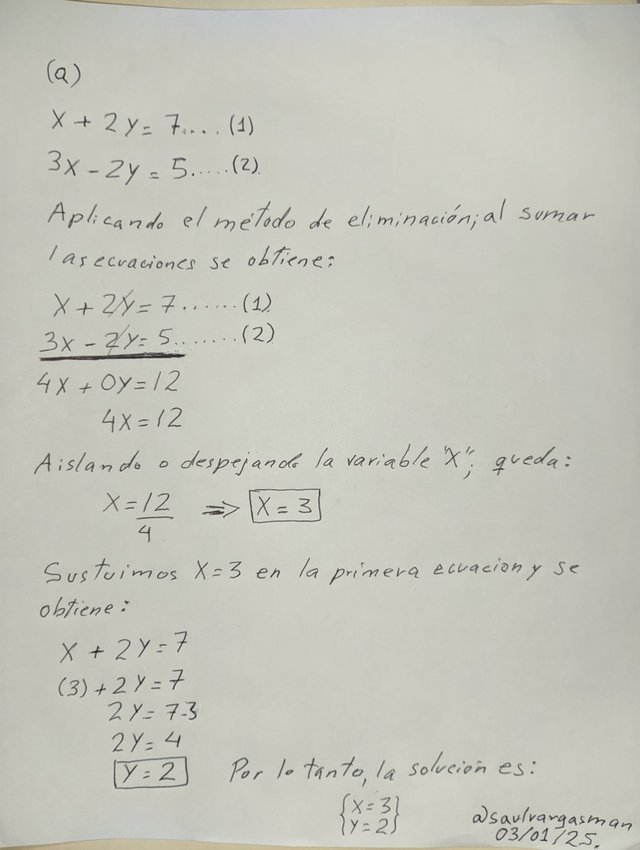 (a)
X + 2Y = 7.... (1)
3X - 2Y = 5..... (2)
Aplicando el método de eliminación; al sumar
las ecuaciones se obtiene:
X + 2Y = 7...... (1)
3X - 2Y = 5....... (2)
4X + 0Y = 12
4X = 12
Aislando o despejando la variable "X"; queda:
X = 12/4 => X = 3
Sustuimos X = 3 en la primera ecuacion y se
obtiene:
X + 2Y = 7
(3) + 2Y = 7
2Y = 7-3
2Y = 4
Y = 2 Por lo tanto, la solución es:
{X = 3}
{Y = 2}
@saulvargasman
03/01/25.